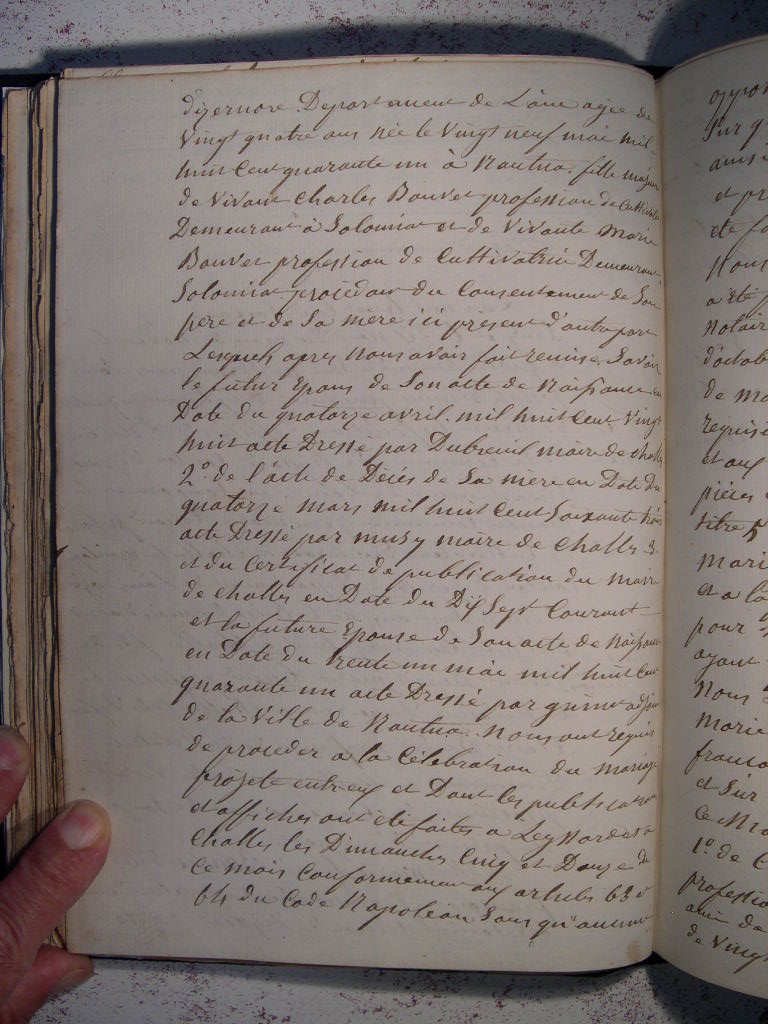 d'izernore Departement de L'ain agée de
Vingt quatre ans née le Vingt neuf mai mil
huit Cent quarante un à Nantua. fille majeure
de Vivant Charles Bouvet profession de Cultivateur
Demeurant à Solomiat et de Vivante Marie
Bouvet profession de Cultivatrice Demeurant
Solomiat procédant du Consentement de Son
père et de Sa mère ici présent d'autre part
Lesquels apres Nous avoir fait remise. Savoir
le futur Epoux de Son acte de Naissance en
Date du quatorze avril. mil huit Cent Vingt
huit acte Dressé par Dubreuil maire de challes
2º de l'acte de Déces de Sa mère en Date du
quatorze mars mil huit Cent Soixante trois
acte Dressé par musy maire de Challes 3.
et du Certificat de publication du maire
de challes en Date du Dix Sept Courant
et la future Epouse de Son acte de Naissance
en Date du trente un mai mil huit Cent
quarante un acte Dressé par adjoint
de la Ville de Nantua. Nous ont requis
de proceder a la Célébration du Mariage
projeté entreux et Dont les publications
et affiches ont été faites a Leyssard et a
Challes les Dimanches Cinq et Douze de
Ce mois Conformement aux articles 63 et
64 du Code Napoléon Sans qu'aucune
oppo
Sur q
ainsi
et pr
été fa
Nous
a été
Notair
d'octob
de ma
requisi
et aux
pièces
titre
Mari
et a la
pour
ayant
Nous
Marie
franco
et Sur
Ce Ma
1º de C
professio
ain de
de Ving